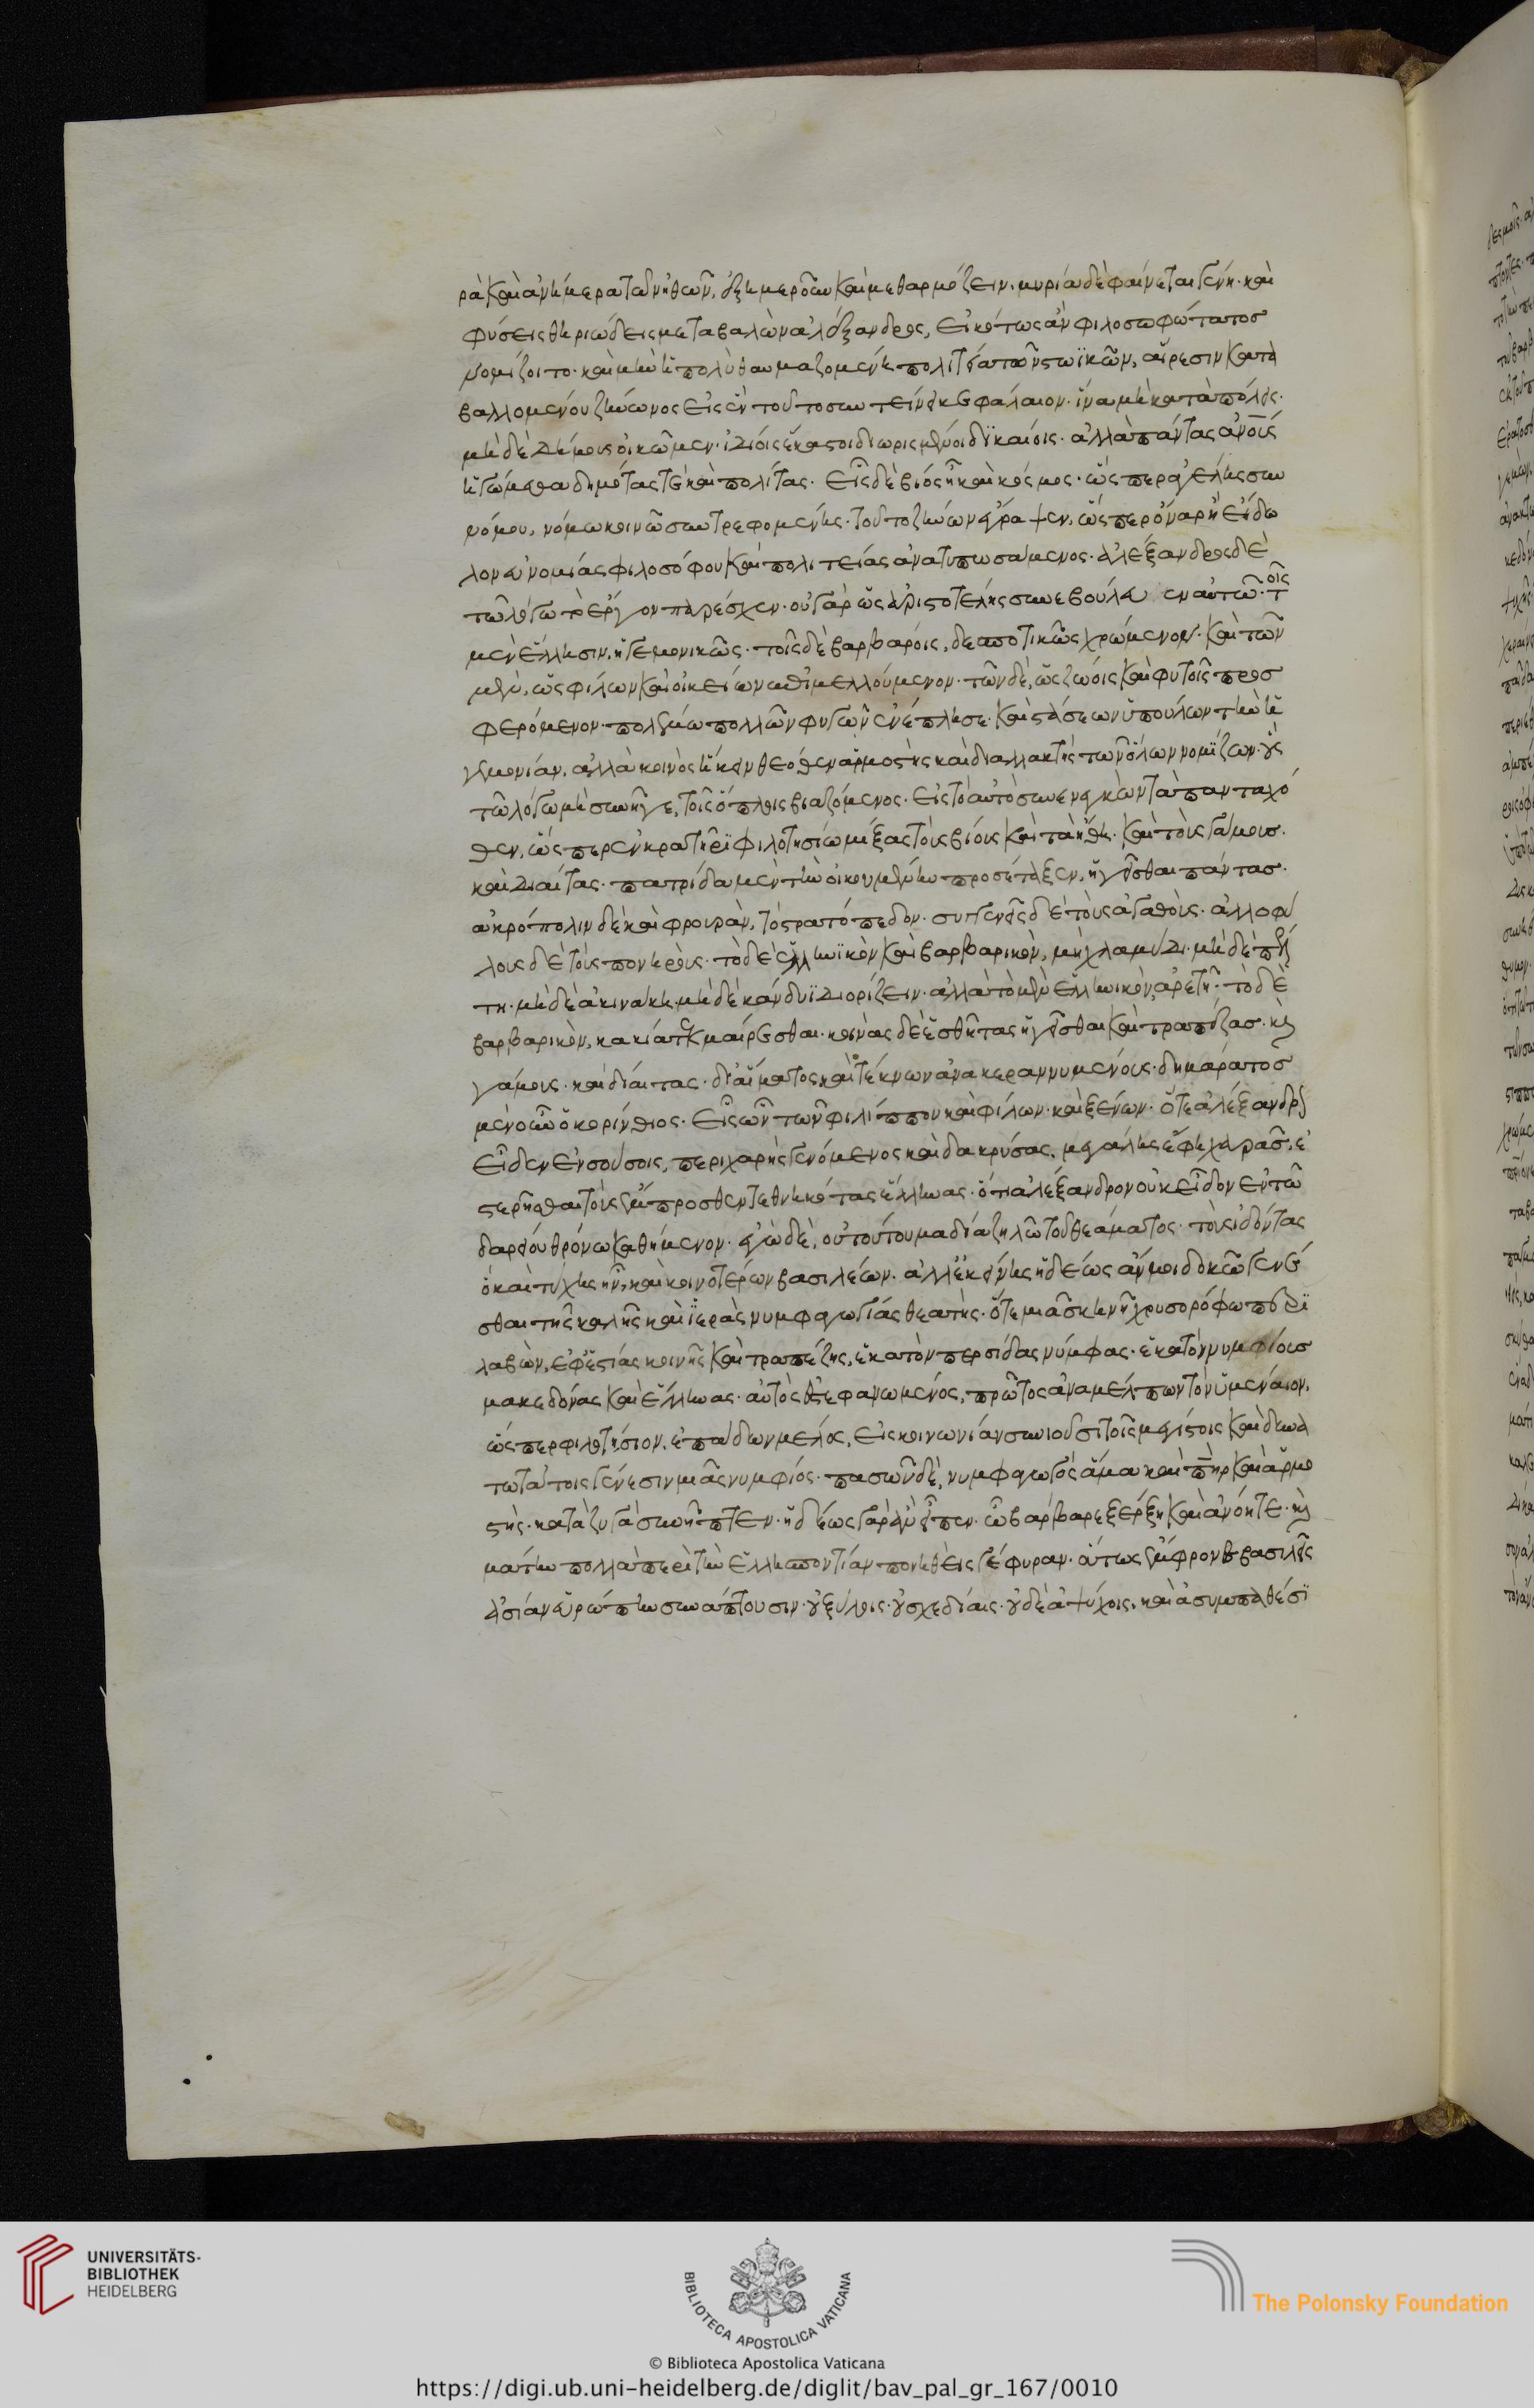 ρὰ καὶ ἀνήμερα τῶν ἠθῶν, ἐξημεροῦν καὶ μεθαρμόζειν. μυρία δὲ φαίνεται γένη. καὶ
φύσεις θηριώδεις μεταβαλὼν ἀλέξανδρος, εἰκότως ἂν φιλοσοφώτατος
νομίζοιτο. καὶ μὴν ἡ πολὺ θαυμαζομένη πολιτεία τοῦ τῶν στωϊκῶν, αἵρεσιν κατα
βαλλομένου ζήνωνος εἰς ἓν τοῦτο συντείνει κεφάλαιον. ἵνα μὴ κατὰ πόλεις.
μηδὲ δήμους οἰκῶμεν. ἰδίοις ἕκαστοι διωρισμένοι δικαίοις. ἀλλὰ πάντας ἀν̅ους
ἡγώμεθα δημότας τε καὶ πολίτας. εἷς δὲ βίος ᾖ καὶ κόσμος. ὥσπερ ἀγέλης συν
νόμου, νόμω κοινῶ συντρεφομένης. τοῦτο ζήνων ἔγραψεν, ὥσπερ ὄναρ ἢ εἴδω
λον εὐνομίας φιλοσόφου καὶ πολιτείας ἀνατυπωσάμενος. ἀλέξανδρος δὲ
τῶ λόγω τὸ ἔργον παρέσχεν. οὐ γὰρ ὡς ἀριστοτέλης συνεβούλευεν αὐτῶ. τοῖς
μὲν ἕλλησιν, ἡγεμονικῶς. τοῖς δὲ βαρβάροις, δεσποτικῶς χρώμενον. καὶ τῶν
μὲν, ὡς φίλων καὶ οἰκείων ἐπιμελλούμενον. τῶν δὲ, ὡς ζώοις καὶ φυτοῖς προσ
φερόμενον. πολέμων πολλῶν φυγῶν ἐνέπλησε. καὶ στάσεων ὑπούλων τὴν ἡ
γεμονίαν, ἀλλὰ κοινὸς ἥκειν θεόθεν ἁρμοστὴς καὶ διαλλακτὴς τῶν ὅλων νομίζων. οὓς
τῶ λόγω μὴ συνῆγε, τοῖς ὅπλοις βιαζόμενος. εἰς τὸ αὐτὸ συνενεγκὼν τὰ πανταχό
θεν, ὥσπερ ἐν κρατῆρι φιλοτησίω μίξας τοὺς βίους καὶ τὰ ἤθη. καὶ τοὺς γάμους.
καὶ διαίτας. πατρίδα μὲν τὴν οἰκουμένην προσέταξεν, ἡγεῖσθαι πάντας.
ἀκρόπολιν δὲ καὶ φρουρὰν, τὸ στρατόπεδον. συγγενεῖς δὲ τοὺς ἀγαθοὺς. ἀλλοφύ
λους δὲ τοὺς πονηρούς. τὸ δὲ ἑλληνϊκὸν καὶ βαρβαρικὸν, μὴ χλαμύδι. μηδὲ πέλ
τη. μηδὲ ἀκινάκη. μηδὲ κάνδυϊ διορίζειν. ἀλλὰ τὸ μὲν ἑλληνικὸν, ἀρετῆ. τὸ δὲ
βαρβαρικὸν, κακία τεκμαίρεσθαι. κοινὰς δὲ ἐσθῆτας ἡγεῖσθαι καὶ τραπέζας. καὶ
γάμους. καὶ διαίτας. δι' αἵματος καὶ τέκνων ἀνακεραννυμένους. δημάρατος
μὲν οὖν ὁ κορίνθιος. εἷς ὢν τῶν φιλίππου καὶ φίλων. καὶ ξένων. ὅτε ἀλέξανδρον
εἶδεν ἐν σούσοις, περιχαρὴς γενόμενος καὶ δακρύσας, μεγάλης ἔφη χαρᾶς, ἐ
στερῆσθαι τοὺς ἔμπροσθεν τεθνηκότας ἕλληνας. ὅτι ἀλέξανδρον οὐκ εἶδον ἐν τῶ
δαρείου θρόνω καθήμενον. ἐγὼ δὲ, οὐ τούτου μα δία ζηλῶ τοῦ θεάματος. τοὺς ἰδόντας
ὃ καὶ τύχης ἦν, καὶ κοινοτέρων βασιλέων. ἀλλ' ἐκείνης ἡδέως ἄν μοι δοκῶ γενέ
σθαι τῆς καλῆς καὶ ἱερᾶς νυμφαγωγίας θεατὴς. ὅτε μιᾶ σκηνῆ χρυσορόφω περι
λαβὼν, ἐφ' ἑστίας κοινῆς καὶ τραπέζης, ἑκατὸν περσίδας νύμφας. ἑκατὸν νυμφίους
μακεδόνας καὶ ἕλληνας. αὐτὸς ἐστεφανωμένος, πρῶτος ἀναμέλπων τὸν ὑμέναιον.
ὥσπερ φιλοτήσιον. ἐπάδων μέλος, εἰς κοινωνίαν συνιοῦσι τοῖς μεγίστοις καὶ δυνα
τωτάτοις γένεσιν μιᾶς νυμφίος. πασῶν δὲ, νυμφαγωγὸς ἅμα καὶ πη̅ρ καὶ ἁρμο
στὴς. κατὰ ζυγὰ συνῆπτεν. ἡδέως γὰρ ἂν εἶπεν. ὦ βάρβαρε ξέρξη καὶ ἀνόητε. καὶ
μάτην πολλὰ περὶ τὴν ἑλλησποντίαν πονηθεὶς γέφυραν. οὕτως ἔμφρονες βασιλεῖς
ἀσίαν εὐρώπη συνάπτουσιν. οὐ ξύλοις. οὐ σχεδίαις. οὐδὲ ἀψύχοις, καὶ ἀσυμπαθέσι
UNIVERSITÄTS-
BIBLIOTHEK
HEIDELBERG
BIBLIOTECA APOSTOLICA VATICANA
The Polonsky Foundation
© Biblioteca Apostolica Vaticana
https://digi.ub.uni-heidelberg.de/diglit/bav_pal_gr_167/0010